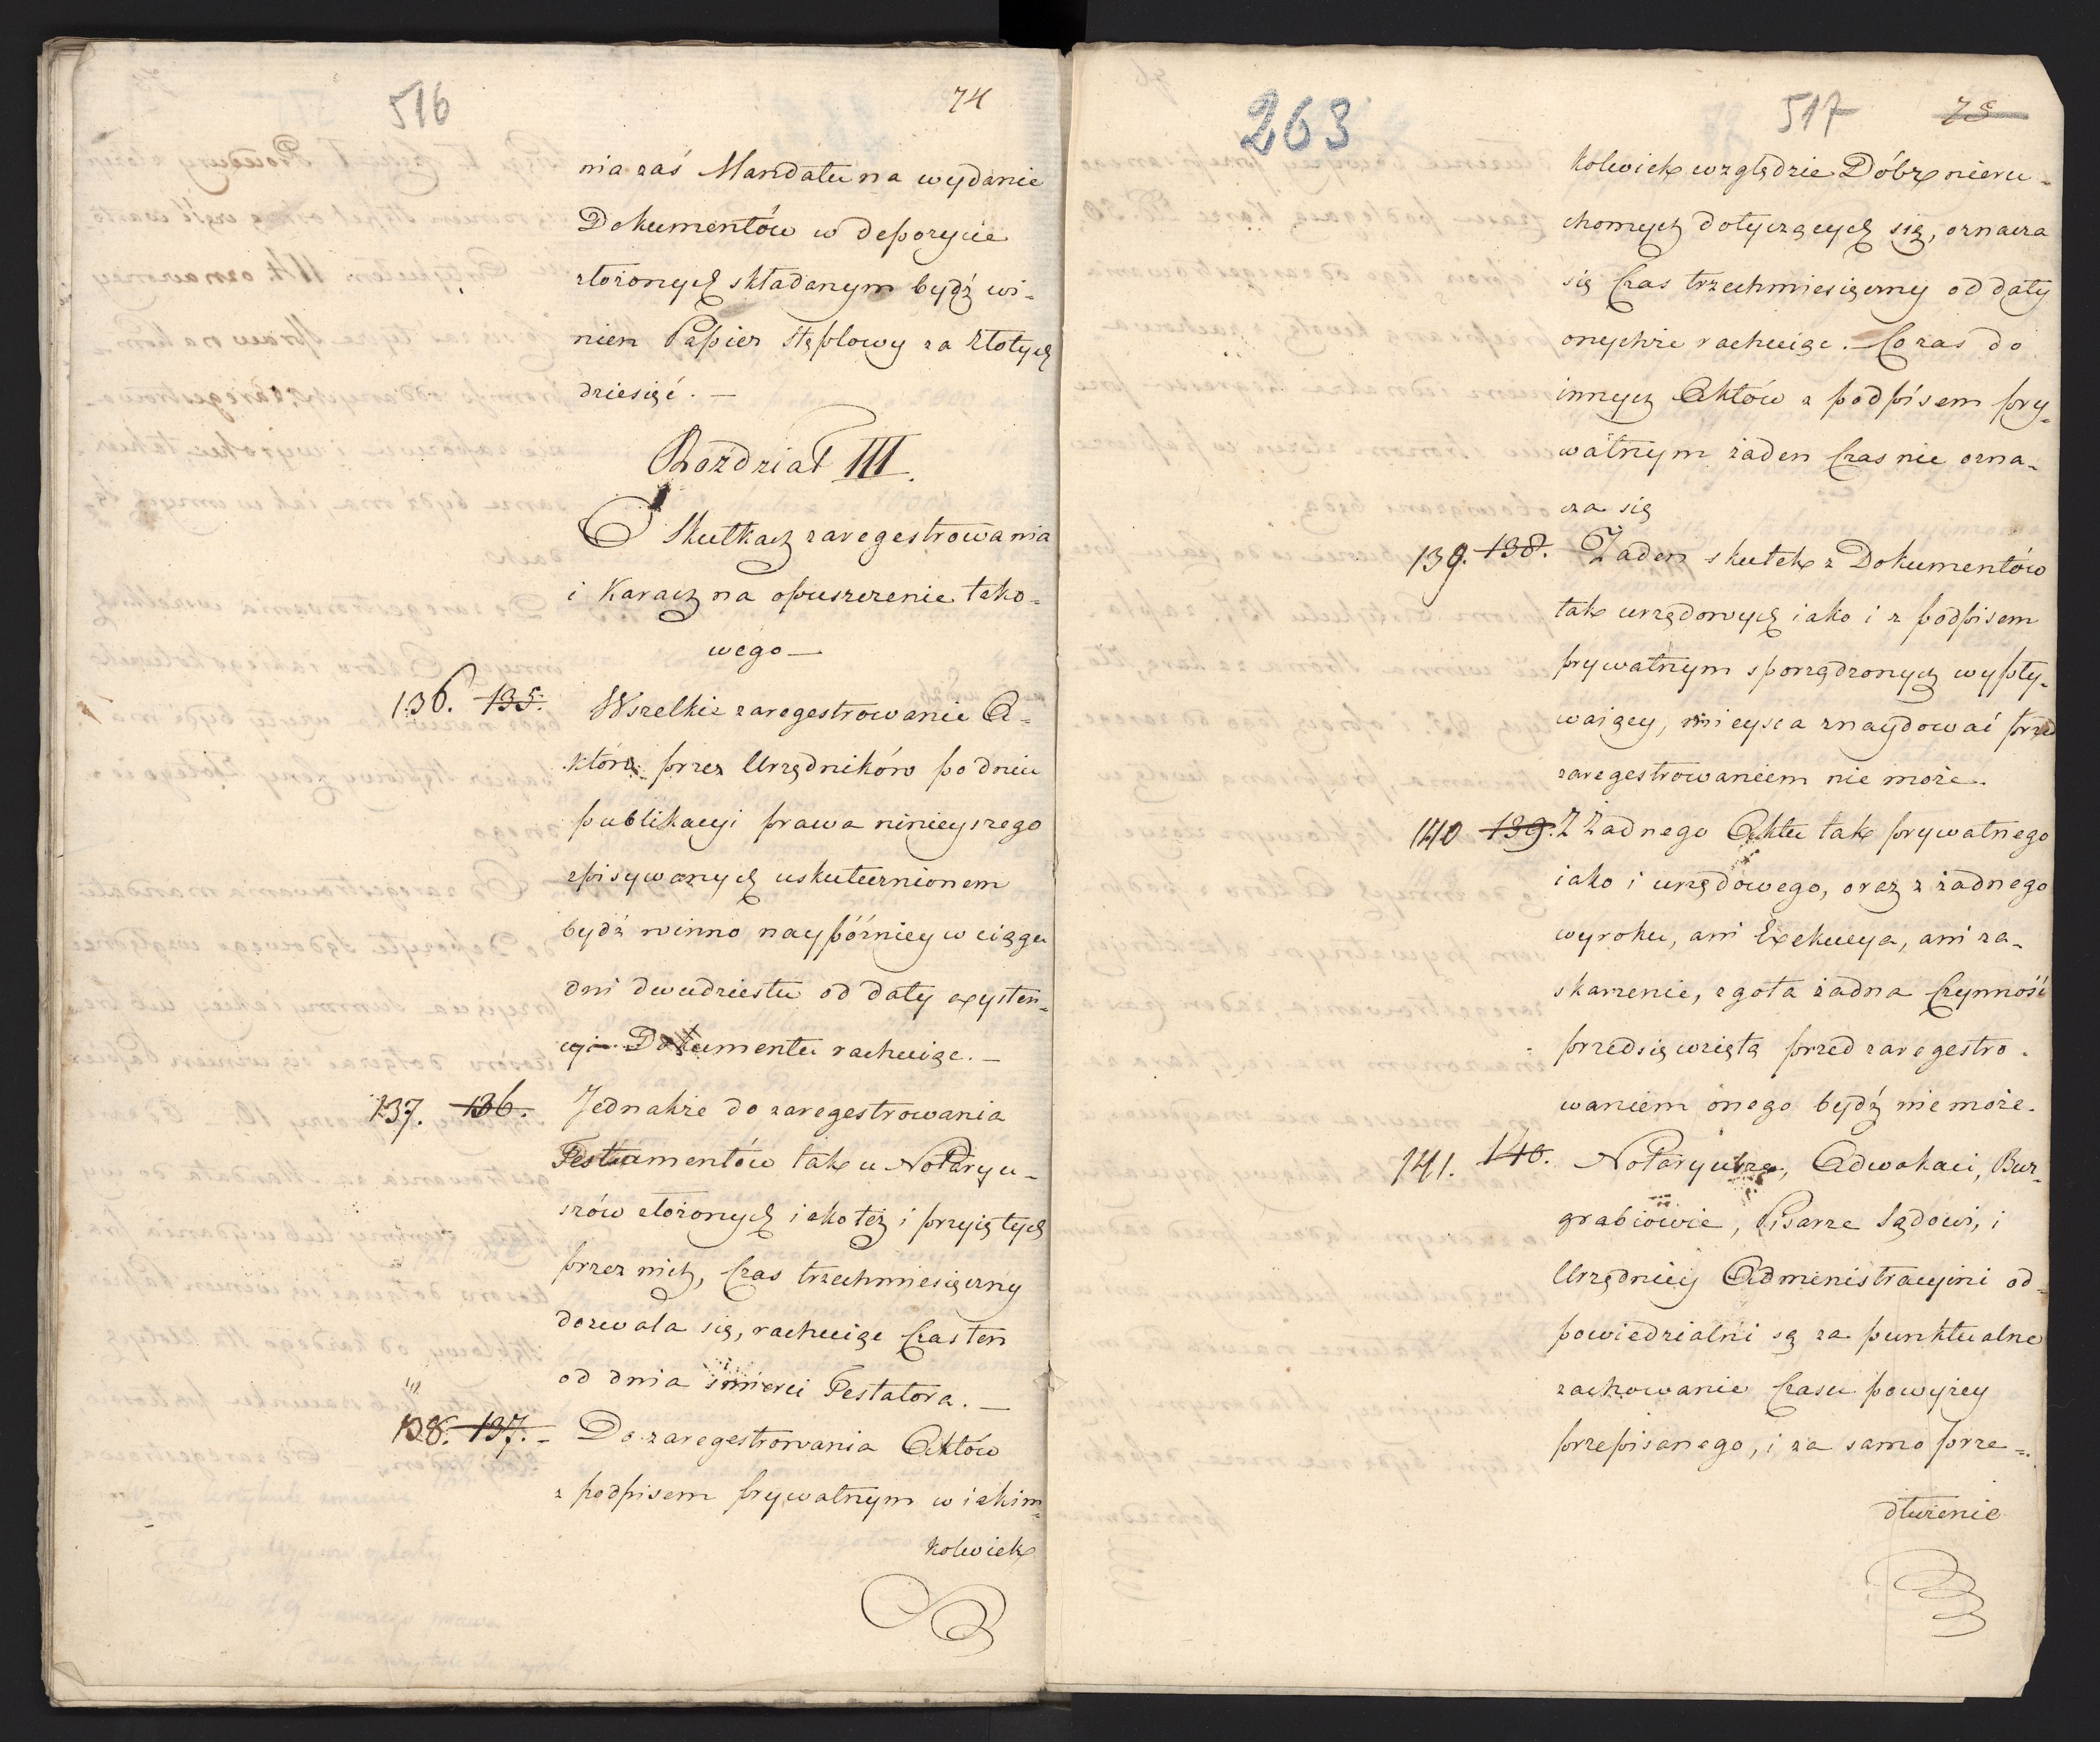 516
74
nia zaś Mandatu na wydanie
Dokumentów w depozycie
złożonych składanym bydź wi-
nien Papier stęplowy za Złotych
dziesięć. —
Rozdział III.
O Skutkach zaregestrowania
i Karach na opuszczenie tako-
wego —
136. 135. Wszelkie zaregestrowanie A-
któw przez Urzędników po dniu
publikacyi prawa ninieyszego
spisywanych uskutecznionem
bydź winno naypóźniey w ciągu
dni dwudziestu od daty exysten-
cyi Dokumentu rachuiąc. —
137. 136. Jednakże do zaregestrowania
Testamentów tak u Notaryu-
szów złożonych iako też i przyiętych
przez nich, Czas trzechmiesięczny
dozwala się, rachuiąc Czas ten
od dnia śmierci Testatora. —
138. 137. Do zaregestrowania Aktów
z podpisem prywatnym w iakim-
kolwiek
263
517
75
kolwiek względzie Dóbr nieru-
chomych dotyczących się, oznacza
się Czas trzechmiesięczny od daty
onychże rachuiąc. Co zaś do
innych Aktów z podpisem pry-
watnym żaden Czas nie ozna-
cza się
139. 138. Żaden skutek z Dokumentów
tak urzędowych iako i z podpisem
prywatnym sporządzonych wypły-
waiący, mieysca znaydować przed
zaregestrowaniem nie może.
140 139. Z Żadnego Aktu tak prywatnego
iako i urzędowego, oraz z żadnego
wyroku, ani Exekucya, ani za-
skarżenie, zgoła żadna Czynność
przedsięwzięta przed zaregestro-
waniem onego bydź nie może.
141. 140. Notaryusze, Adwokaci, Bur-
grabiowie, Pisarze Sądowi, i
Urzędnicy Administracyini od-
powiedzialni są za punktualne
zachowanie Czasu powyżey
przepisanego, i za samo prze-
dłużenie